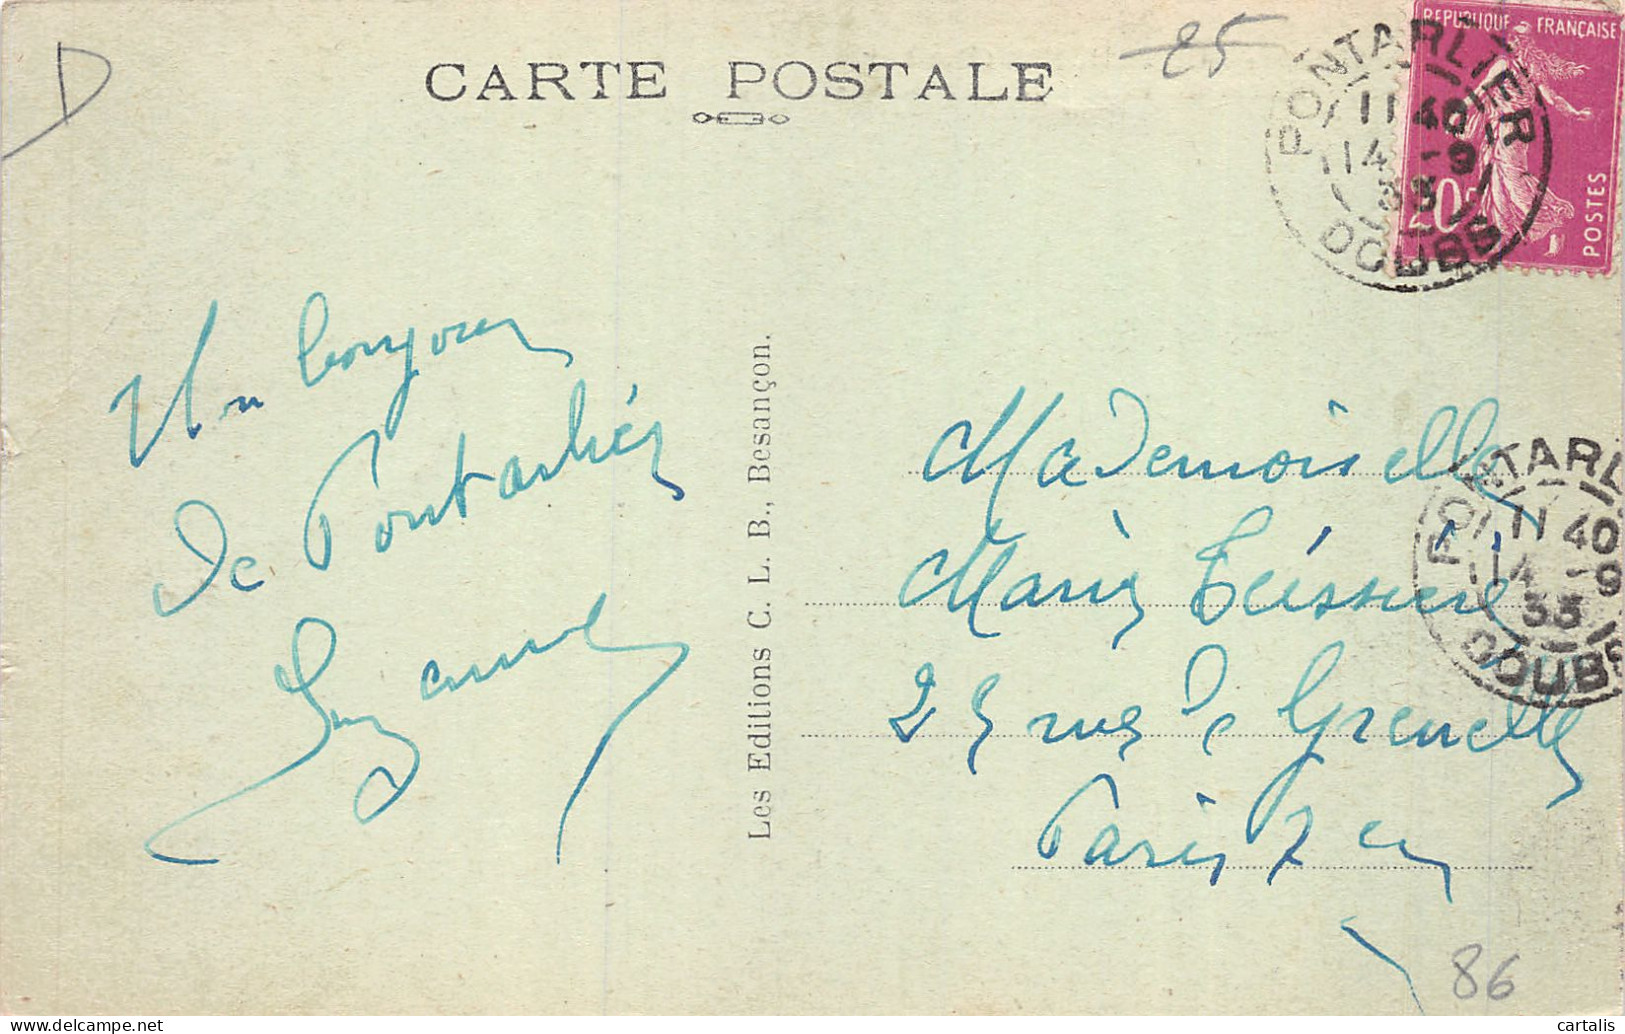 CARTE POSTALE
D
25
REPUBLIQUE FRANÇAISE
20c
POSTES
PONTARLIER
11 40
14 -9
33
DOUBS
Un bonjour
de Pontarlier
Suzanne
Les Editions C. L. B., Besançon.
Mademoiselle
Marie Teissier
25 rue de Grenelle
Paris 7 e
PONTARL
11 40
14 -9
33
DOUBS
86
cartalis